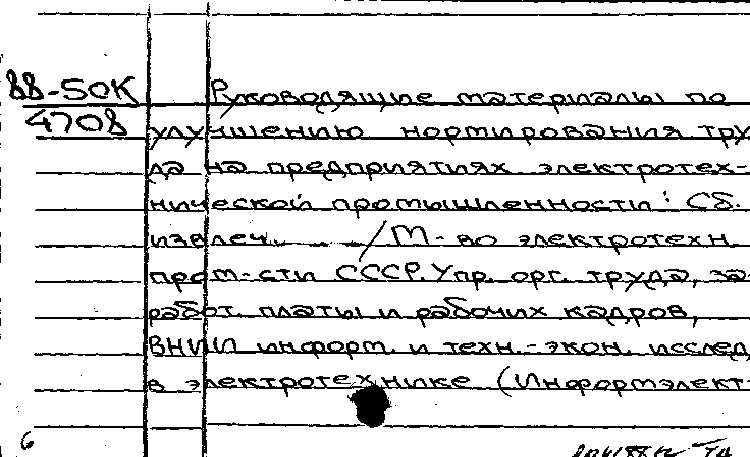 88-50К
4708
Руководящие материалы по
улучшению нормирования тру
да на предприятиях электротех-
нической промышленности: Сб.
извлеч. /М-во электротехн
пром-сти СССР. Упр. орг. труда, за
работ. платы и рабочих кадров,
ВНИИ информ. и техн.-экон. исслед
в электротехнике (Информэлект
6